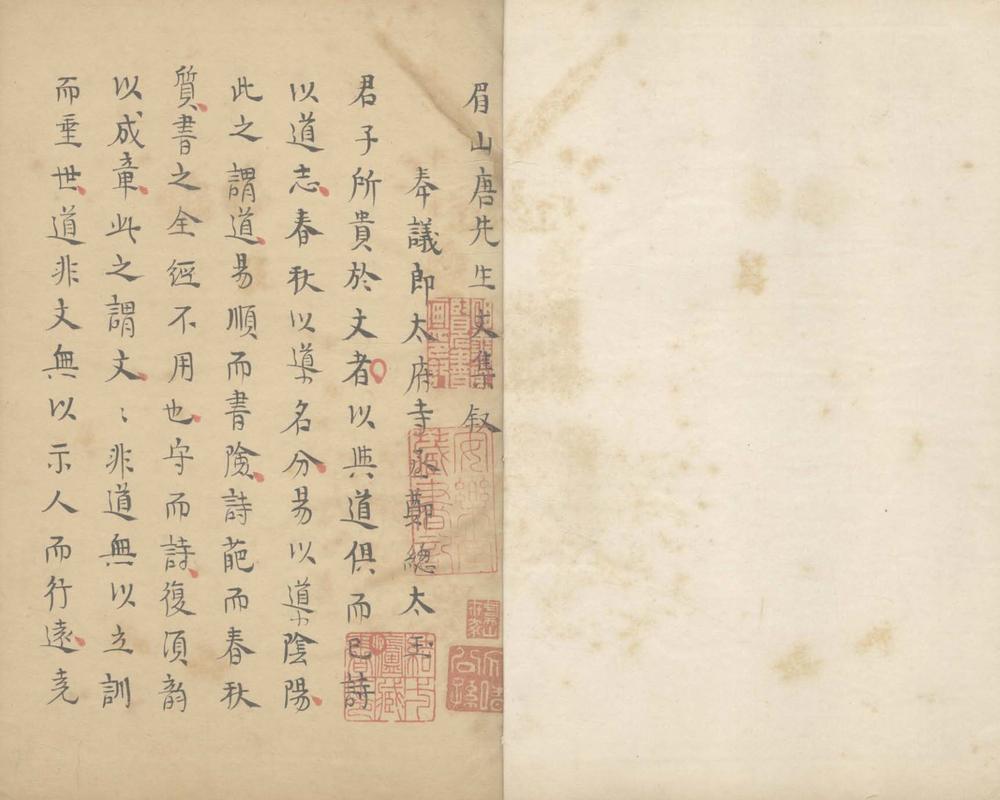 眉山唐先生文集叙
奉議郎太府寺丞鄭總太玉
君子所貴於文者以與道俱而已詩
以道志春秋以道名分易以道陰陽
此之謂道易順而書險詩葩而春秋
質書之全經不用也字而詩復須韵
以成章此之謂文〻非道無以立訓
而垂世道非文無以示人而行遠堯